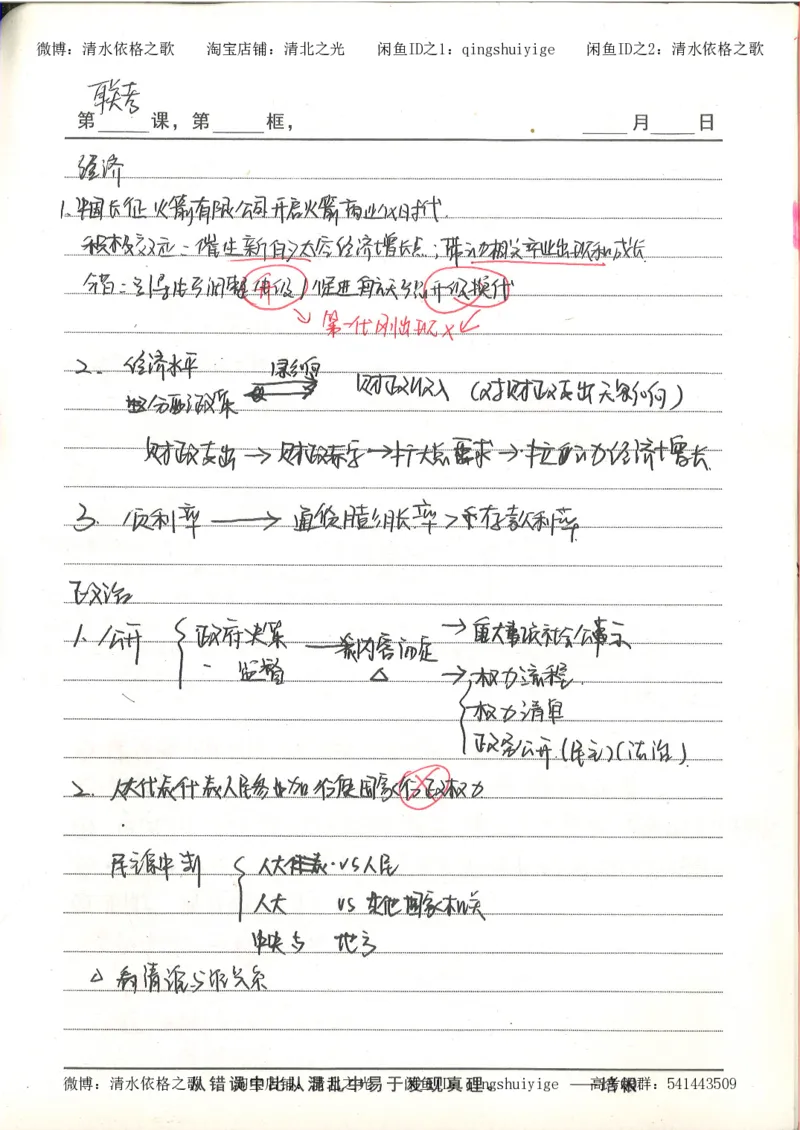 微博：清水依格之歌 淘宝店铺：清北之光 闲鱼ID之1：qingshuiyige 闲鱼ID之2：清水依格之歌
联考
第 课，第 框， 月 日
经济
1.中国长征火箭有限公司开启火箭商业化时代.
积极效应：催生新的太空经济增长点；带动相关产业出现和成长
错：引导传引调整升级）促进航天产品升级换代
第一代刚出现×
2. 经济水平 影响 财政收入（对财政支出无影响）
分配政策
财政支出→财政赤字→扩大总需求→拉动经济增长.
3. 负利率→通货膨胀率>币存款利率
政治
1. 公开 政府决策 →从内容而定 →重大事项社会公示
监督 △ →权力流程.
权力清单
政务公开.(民主)(法治).
2. 人大代表代表人民参与行使国家行政权力
民主集中制 人大代表 vs 人民
人大 vs 其他国家机关
中央与 地方
△ 看清谁与谁关系
微博：清水依格之歌 淘宝店铺：清北之光 闲鱼ID：qingshuiyige 高考群：541443509
从错误中比从混乱中易于发现真理。——培根